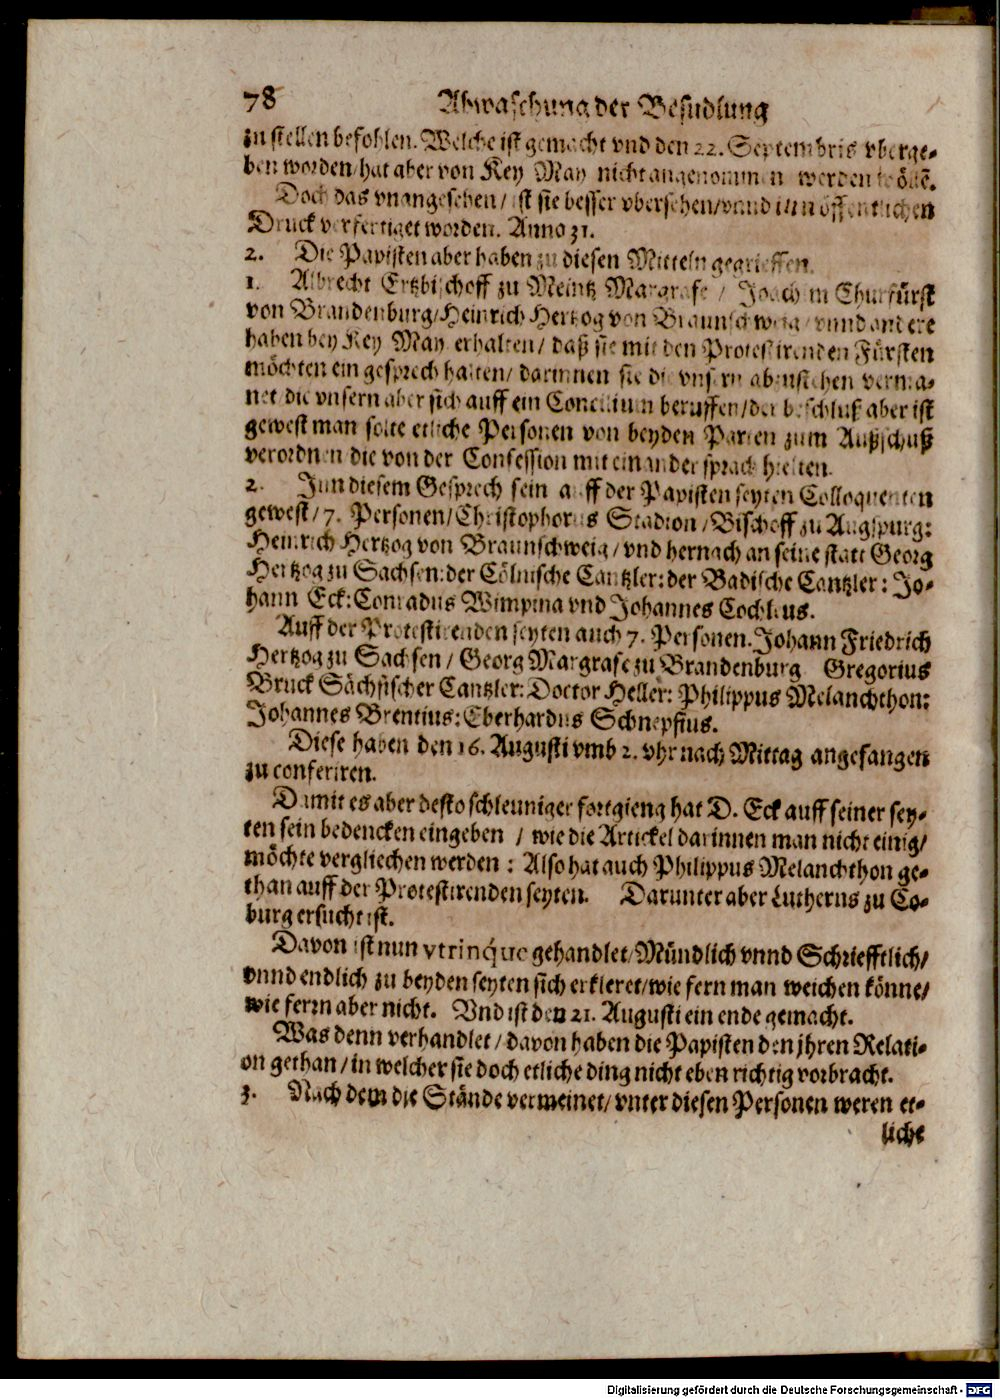 78 Abwaschung der Besudlung
zu stellen befohlen. Welche ist gemacht vnd den 22. Septembris vberge-
ben worden/hat aber von Key May nicht angenommen werden wöllē.
Doch das vnangesehen/ ist sie besser vbersehen/vnnd inn öffentlichen
Druck verfertiget worden. Anno 31.
2. Die Papisten aber haben zu diesen Mitteln gegrieffen.
1. Albrecht Ertzbischoff zu Meintz Margrafe / Joachim Churfürst
von Brandenburg/Heinrich Hertzog von Braunschweig/vnnd andere
haben bey Key May erhalten/ daß sie mit den Protestirenden Fürsten
möchten ein gesprech halten/ darinnen sie die vnsern abzustehen verma-
net/die vnsern aber sich auff ein Concilium beruffen/der beschluß aber ist
gewest man solte etliche Personen von beyden Parten zum Außschuß
verordnen die von der Confession mit einander sprach hielten.
2. Inn diesem Gesprech sein auff der Papisten seyten Colloquenten
gewest/7. Personen/Christophorus Stadion/Bischoff zu Augspurg:
Heinrich Hertzog von Braunschweig/vnd hernach an seine statt Georg
Hertzog zu Sachsen:der Cölnische Cantzler:der Badische Cantzler: Jo-
hann Eck:Conradus Wimpina vnd Johannes Cochleus.
Auff der Protestirenden seyten auch 7. Personen. Johann Friedrich
Hertzog zu Sachsen/ Georg Margrafe zu Brandenburg Gregorius
Bruck Sächsischer Cantzler: Doctor Heller: Philippus Melanchthon:
Johannes Brentius:Eberhardus Schnepffius.
Diese haben den 16. Augusti vmb 2. vhr nach Mittag angefangen
zu conferiren.
Damit es aber desto schleuniger fortgieng hat D. Eck auff seiner sey-
ten sein bedencken eingeben / wie die Artickel darinnen man nicht einig/
möchte vergliechen werden : Also hat auch Philippus Melanchthon ge-
than auff der Protestirenden seyten. Darunter aber Lutherus zu Co-
burg ersucht ist.
Davon ist nun vtrinque gehandlet/Mündlich vnnd Schriefftlich/
vnnd endlich zu beyden seyten sich erkleret/wie fern man weichen könne/
wie ferrn aber nicht. Vnd ist den 21. Augusti ein ende gemacht.
Was denn verhandlet/davon haben die Papisten den jhren Relati-
on gethan/in welcher sie doch etliche ding nicht eben richtig vorbracht.
3. Nach dem die Stände vermeinet/vnter diesen Personen weren et-
liche
Digitalisierung gefördert durch die Deutsche Forschungsgemeinschaft - DFG